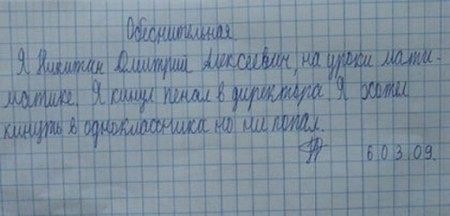 Обеснительная
Я Никитин Дмитрий Алексеевич, на уроки мати-
матике. Я кинул пенал в директора Я хотел
кинуть в однокласника но ни попал.
6.03.09.